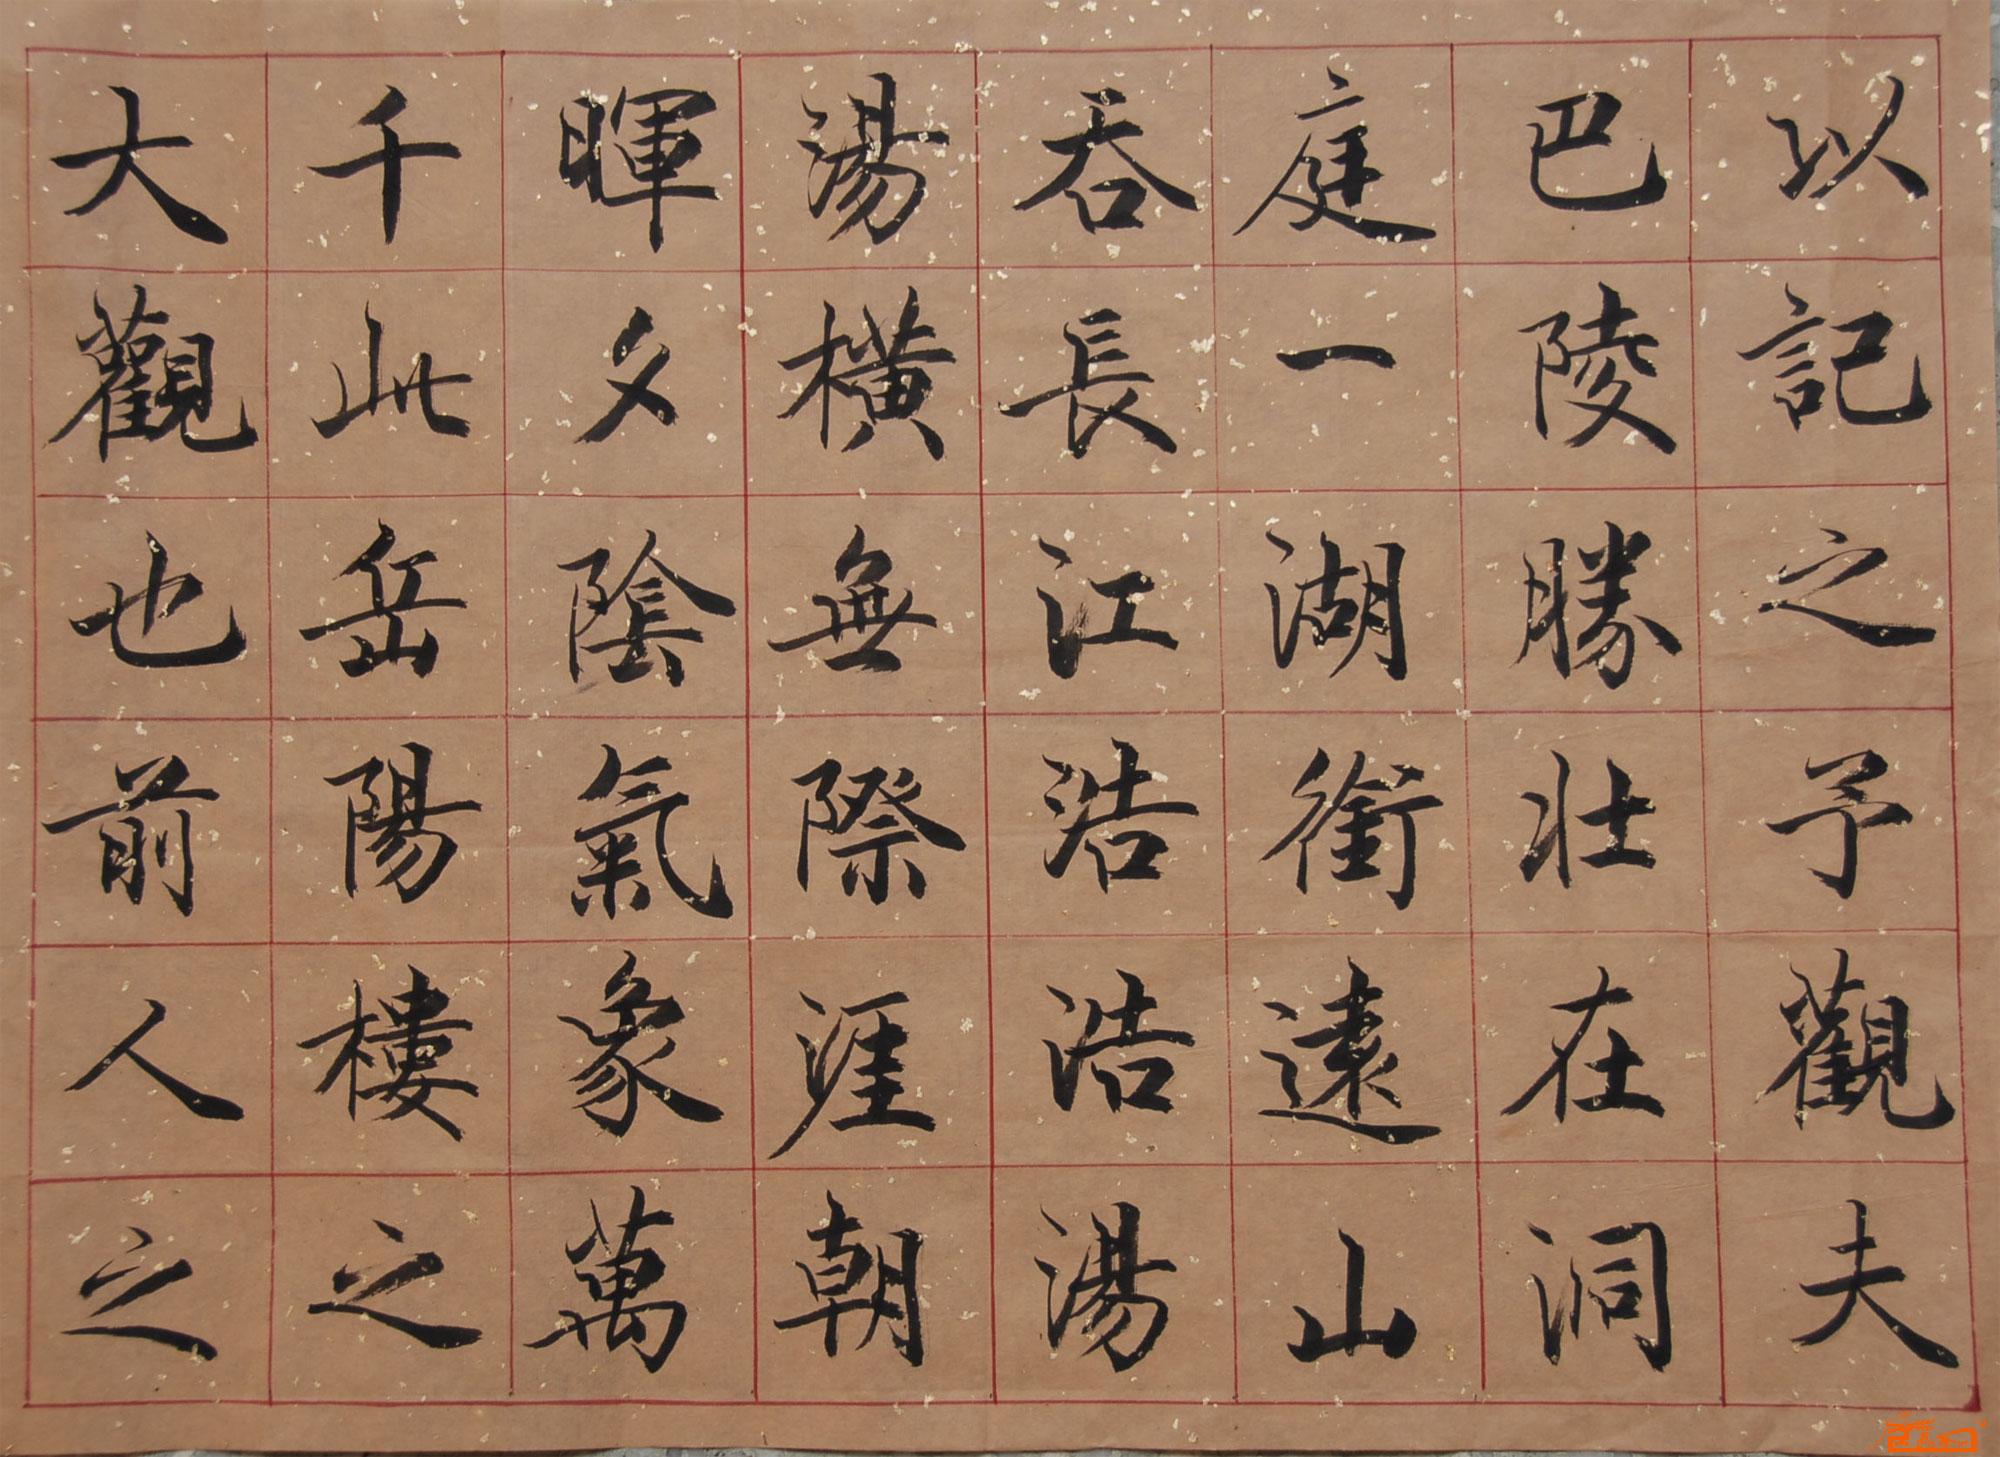 以記之予觀夫
巴陵勝壯在洞
庭一湖銜遠山
吞長江浩浩湯
湯橫無際涯朝
暉夕陰氣象萬
千此岳陽樓之
大觀也前人之